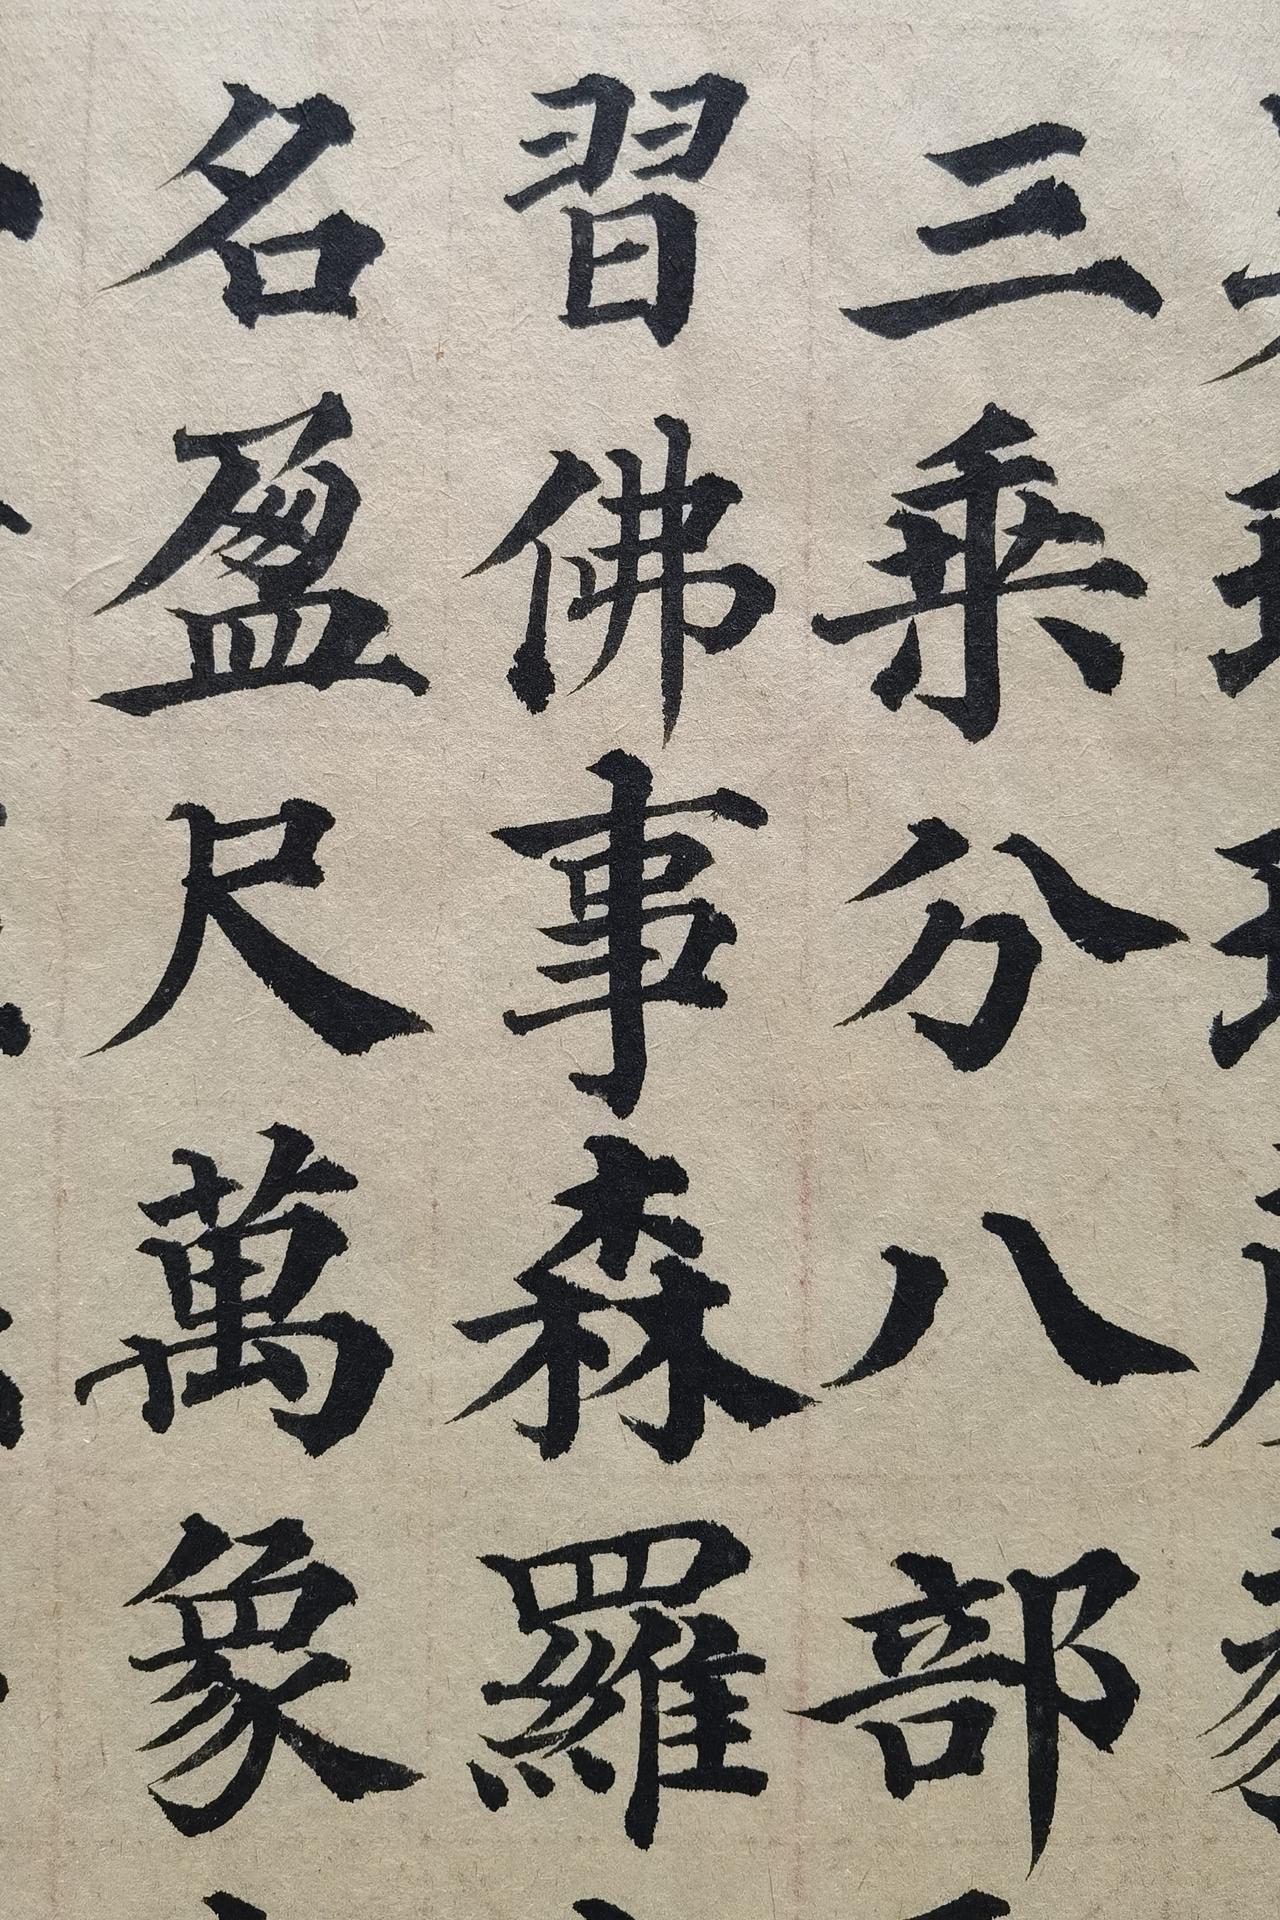 三乘分八部
習佛事森羅
名盈尺萬象